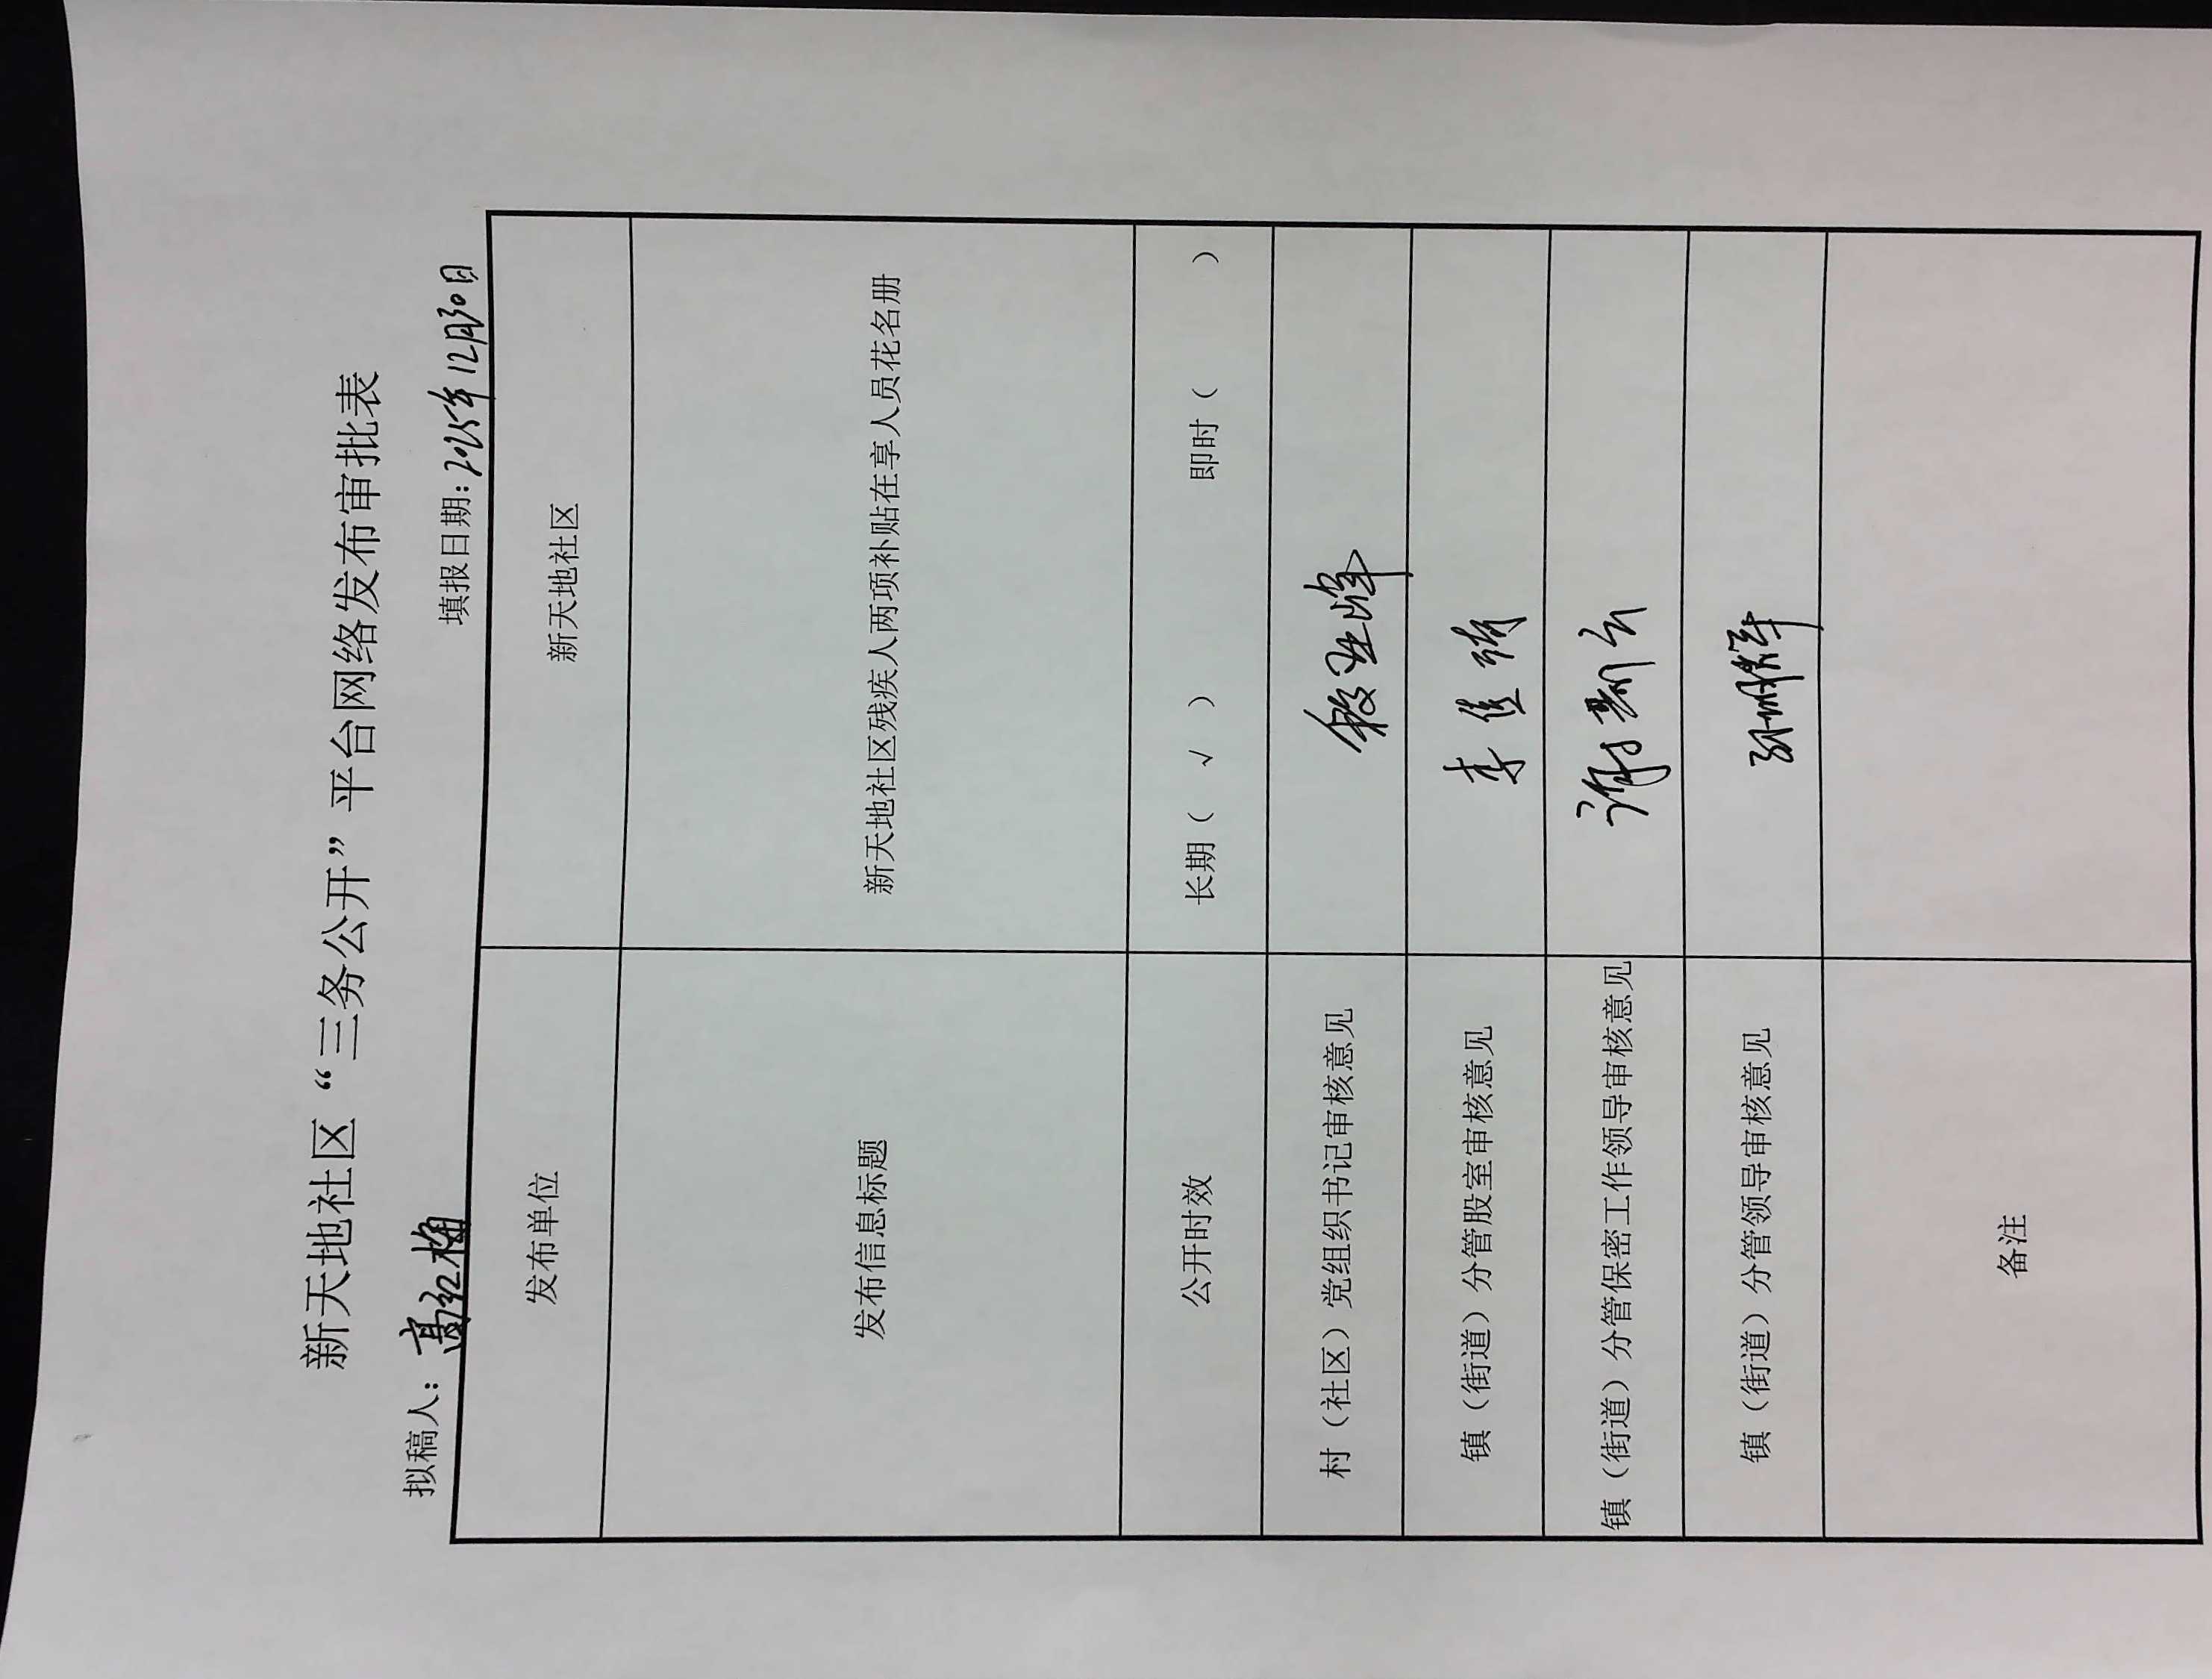 新天地社区“三务公开”平台网络发布审批表
拟稿人：高红梅 填报日期：2025年12月30日
发布单位 新天地社区
发布信息标题 新天地社区残疾人两项补贴在享人员花名册
公开时效 长期（ √ ） 即时（ ）
村（社区）党组织书记审核意见
镇（街道）分管股室审核意见 李佳
镇（街道）分管保密工作领导审核意见 谢
镇（街道）分管领导审核意见 孙
备注